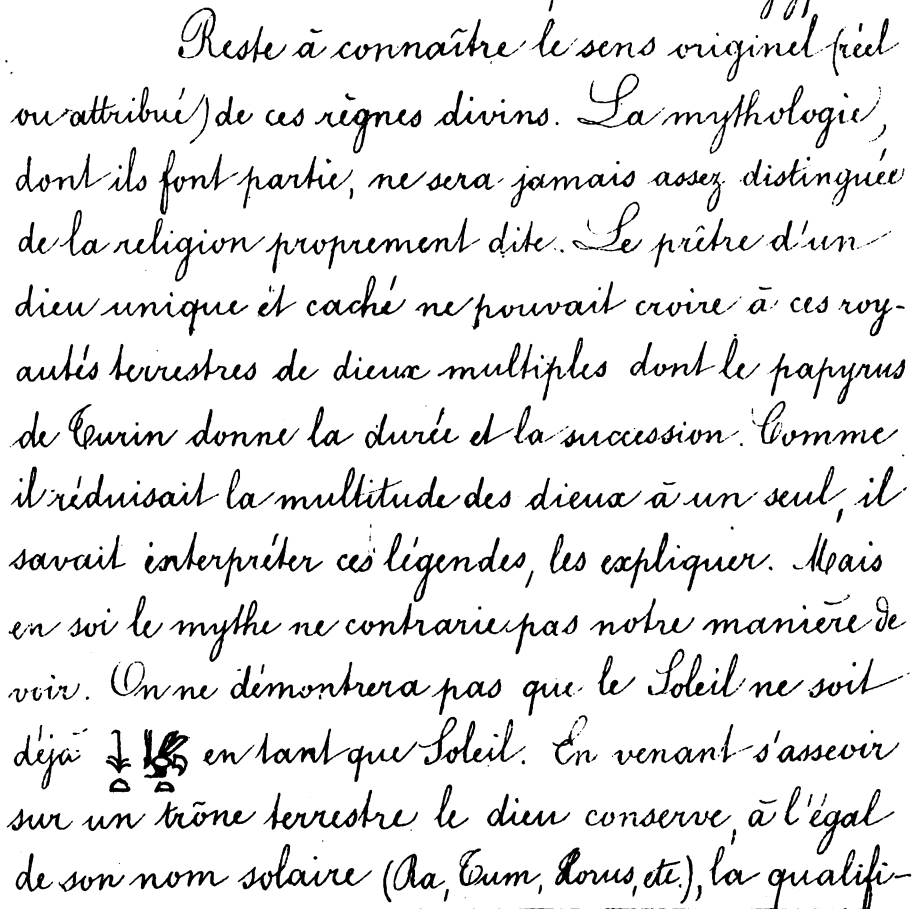 Reste à connaître le sens originel (réel
ou attribué) de ces règnes divins. La mythologie,
dont ils font partie, ne sera jamais assez distinguée
de la religion proprement dite. Le prêtre d'un
dieu unique et caché ne pouvait croire à ces roy-
autés terrestres de dieux multiples dont le papyrus
de Turin donne la durée et la succession. Comme
il réduisait la multitude des dieux à un seul, il
savait interpréter ces légendes, les expliquer. Mais
en soi le mythe ne contrarie pas notre manière de
voir. On ne démontrera pas que le Soleil ne soit
déjà 𓇓𓏏𓆤𓏏 en tant que Soleil. En venant s'asseoir
sur un trône terrestre le dieu conserve, à l'égal
de son nom solaire (Ra, Tum, Horus, etc.), la qualifi-